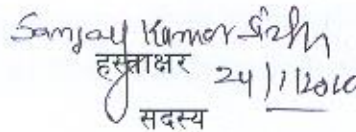 Sanjay Kumar Sinha
हस्ताक्षर 24/1/2010
सदस्य